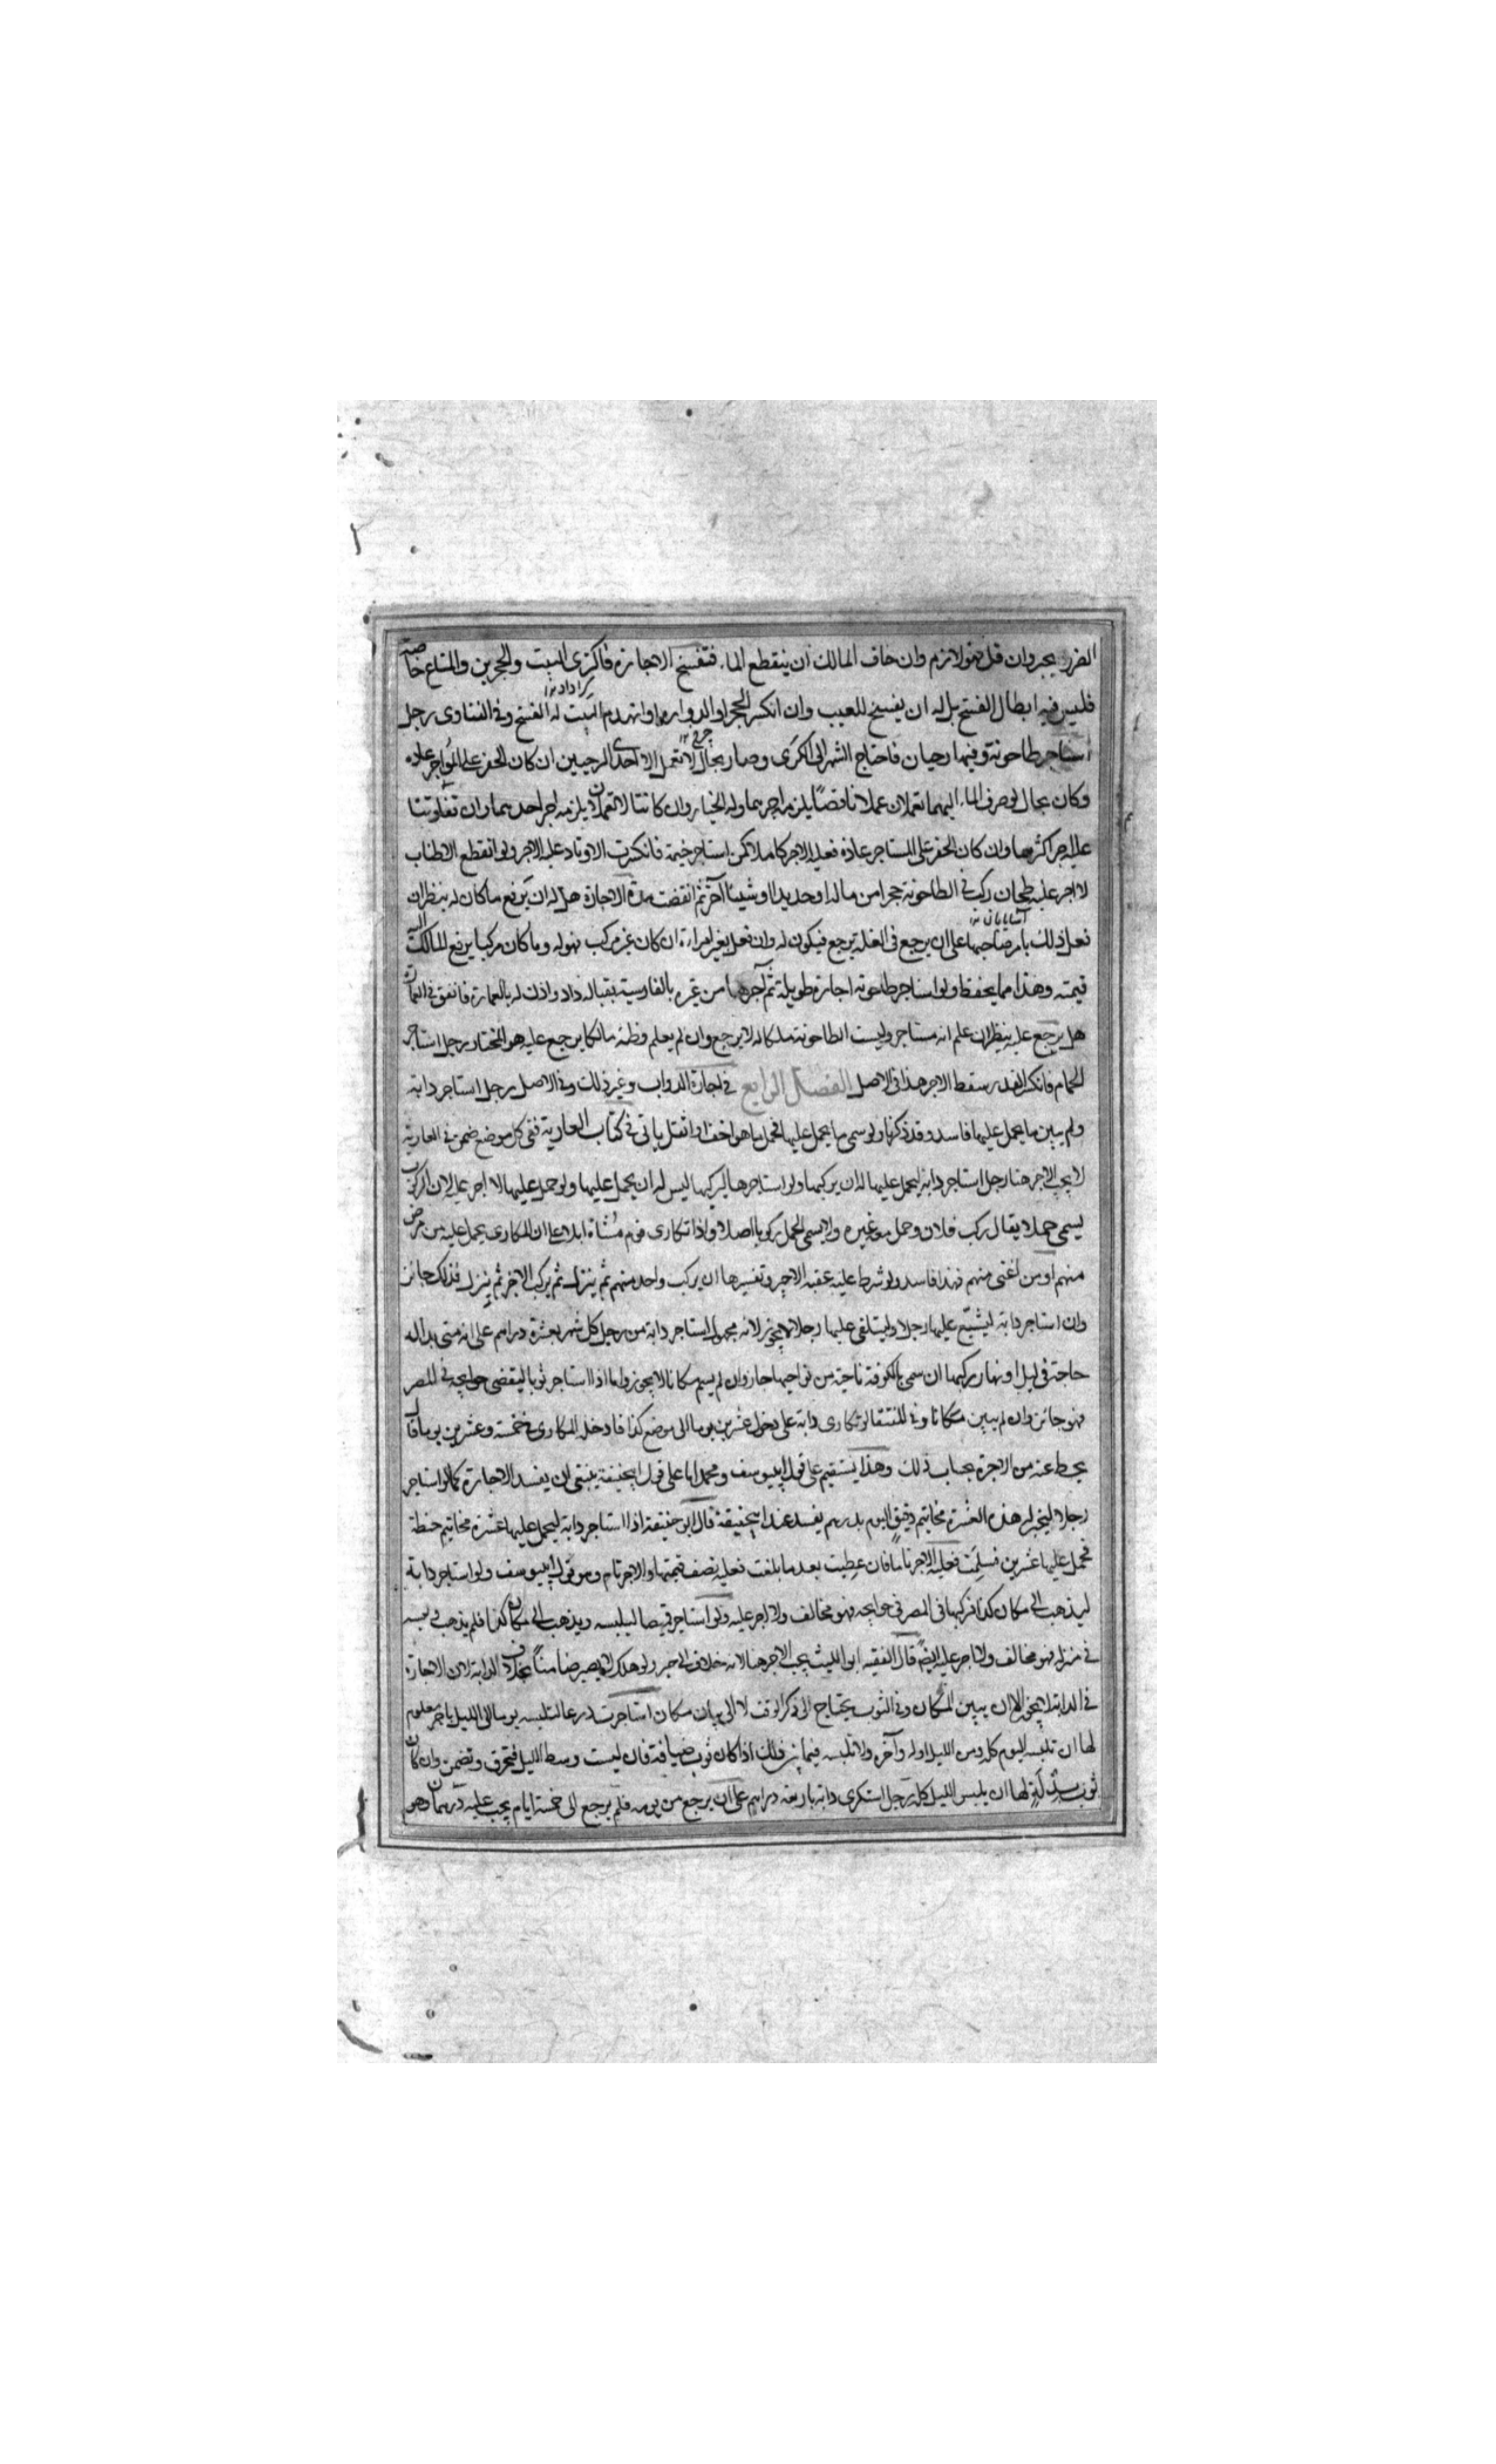 الضرر يجبر وان قل فهو لازم وان خاف المالك ان ينقطع الماء فتفسخ الاجازة فاكرى البيت والحجرين والمتاع خاصة
فليس فيه ابطال الفسخ بل له ان يفسخ للعيب وان انكسر الحجر او الدوارة او انهدم البيت له الفسخ وفي الفتاوى رجل
استاجر طاحونة وفيها رحيان فاحتاج النهر الى الكرى وصار بحال لا تعمل الا احدى الرحيين ان كان الحفر على المواجر عادة
وكان بحال لو صرف الماء اليهما تعملان عملا ناقصا يلزمه اجرهما وله الخيار وان كانتا لا تعملان يلزمه اجر احدهما وان تفاوتتا
عليه اجر اكثرهما وان كان الحفر على المستاجر عادة فعليه الاجر كاملا كمن استاجر خيمة فانكسرت الاوتاد عليه الاجر ولو انقطع الاطناب
لا اجر عليه طحان ركب في الطاحونة حجرا من ماله او حديدا او شيئا آخر ثم انقضت مدة الاجازة هل له ان يرفع ما كان له ينظر ان
فعل ذلك بامر صاحبها على ان يرجع في الغلة يرجع فيكون له وان فعل بغير امره ان كان غير مركب فهو له وما كان مركبا يرفع المالك اليه
قيمته وهذا مما يحفظ ولو استاجر طاحونة اجارة طويلة ثم آجرها من غيره بالفارسية بقباله داد واذن له بالعمارة فانفق في العمارة
هل يرجع عليه ينظر ان علم انه مستاجر وليست الطاحونة ملكا له لا يرجع وان لم يعلم وظنه مالكا يرجع عليه هو المختار رجل استاجر
الحمام فانكسر القدر سقط الاجر هذا في الاصل الفصل الرابع في اجارة الدواب وغير ذلك وفي الاصل رجل استاجر دابة
ولم يبين ما يحمل عليها فاسد وقد ذكرنا ولو سمى ما يحمل عليها فحمل ما هو اخف او اثقل ياتي في كتاب العارية ففي كل موضع ضمن في العارية
لا يجب الاجر هنا رجل استاجر دابة ليحمل عليها له ان يركبها ولو استاجرها ليركبها ليس له ان يحمل عليها ولو حمل عليها لا اجر عليه لان الركوب
يسمى حملا يقال ركب فلان وحمل معه غيره ولا يسمى الحمل ركوبا اصلا واذا تكارى قوم مشاة ابلا على ان المكارى يحمل عليه من مرض
منهم او من اعيى منهم فهذا فاسد ولو شرط عليه عقبة الاجير وتفسيرها ان يركب واحد منهم ثم ينزل ثم يركب الاخر ثم ينزل فذلك جائز
وان استاجر دابة ليشيع عليها رجلا او ليتلقى عليها رجلا لا يجوز لانه مجهول استاجر دابة من رجل كل شهر بعشرة دراهم على انه متى بدا له
حاجة في ليل او نهار يركبها ان سمى بالكوفة ناحية من نواحيها جاز وان لم يسم مكانا لا يجوز واما اذا استاجر ثوبا ليقضى حوايجه في المصر
فهو جائز وان لم يبين مكانا وفي المنتقى لو تكارى دابة على دخول عشرين يوما الى موضع كذا فادخله المكارى في خمسة وعشرين يوما قال
يحط عنه من الاجرة بحساب ذلك وهذا يستقيم على قول ابي يوسف ومحمد اما على قول ابي حنيفة ينبغى ان يفسد الاجارة كما لو استاجر
رجلا ليخبز له هذه العشرة مخاتيم دقيق اليوم بدرهم يفسد عند ابي حنيفة قال ابو حنيفة اذا استاجر دابة ليحمل عليها عشرة مخاتيم حنطة
فحمل عليها عشرين فسلمت فعليه الاجر تاما فان عطبت بعد ما بلغت فعليه نصف قيمتها والاجر تام وهو قول ابي يوسف ولو استاجر دابة
ليذهب الى مكان كذا فركبها في المصر في حوايجه فهو مخالف ولا اجر عليه ولو استاجر قميصا ليلبسه ويذهب الى مكان كذا فلم يذهب ولبسه
في منزله فهو مخالف ولا اجر عليه ايضا قال الفقيه ابو الليث يجب الاجر هنا لانه خلاف الى خير ولو هلك لا يصير ضامنا بخلاف الدابة لان الاجارة
في الدابة لا يجوز الا ان يبين المكان وفي الثوب يحتاج الى ذكر الوقت لا الى بيان مكان استاجرت درعا لتلبسه يوما الى الليل باجر معلوم
لها ان تلبس اليوم كله ومن الليل اوله وآخره ولا تلبسه فيما بين ذلك اذا كان ثوب ضيافة فان لبست وسط الليل فتخرق وتضمن وان كان
ثوب بذلة لها ان يلبس الليل كله رجل استكرى دابة باربعة دراهم على ان يرجع من يومه فلم يرجع الى خمسة ايام يجب عليه درهمان وهو